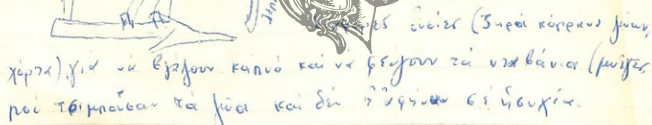 οὐσίες (ξηρά κόπρανα ζώων,
χόρτα) γιά νά βγάζουν καπνό καί νά φεύγουν τά νταβάνια (μυίγες,
πού τσιμποῦσαν τά ζῶα καί δέν ἡσυχία.